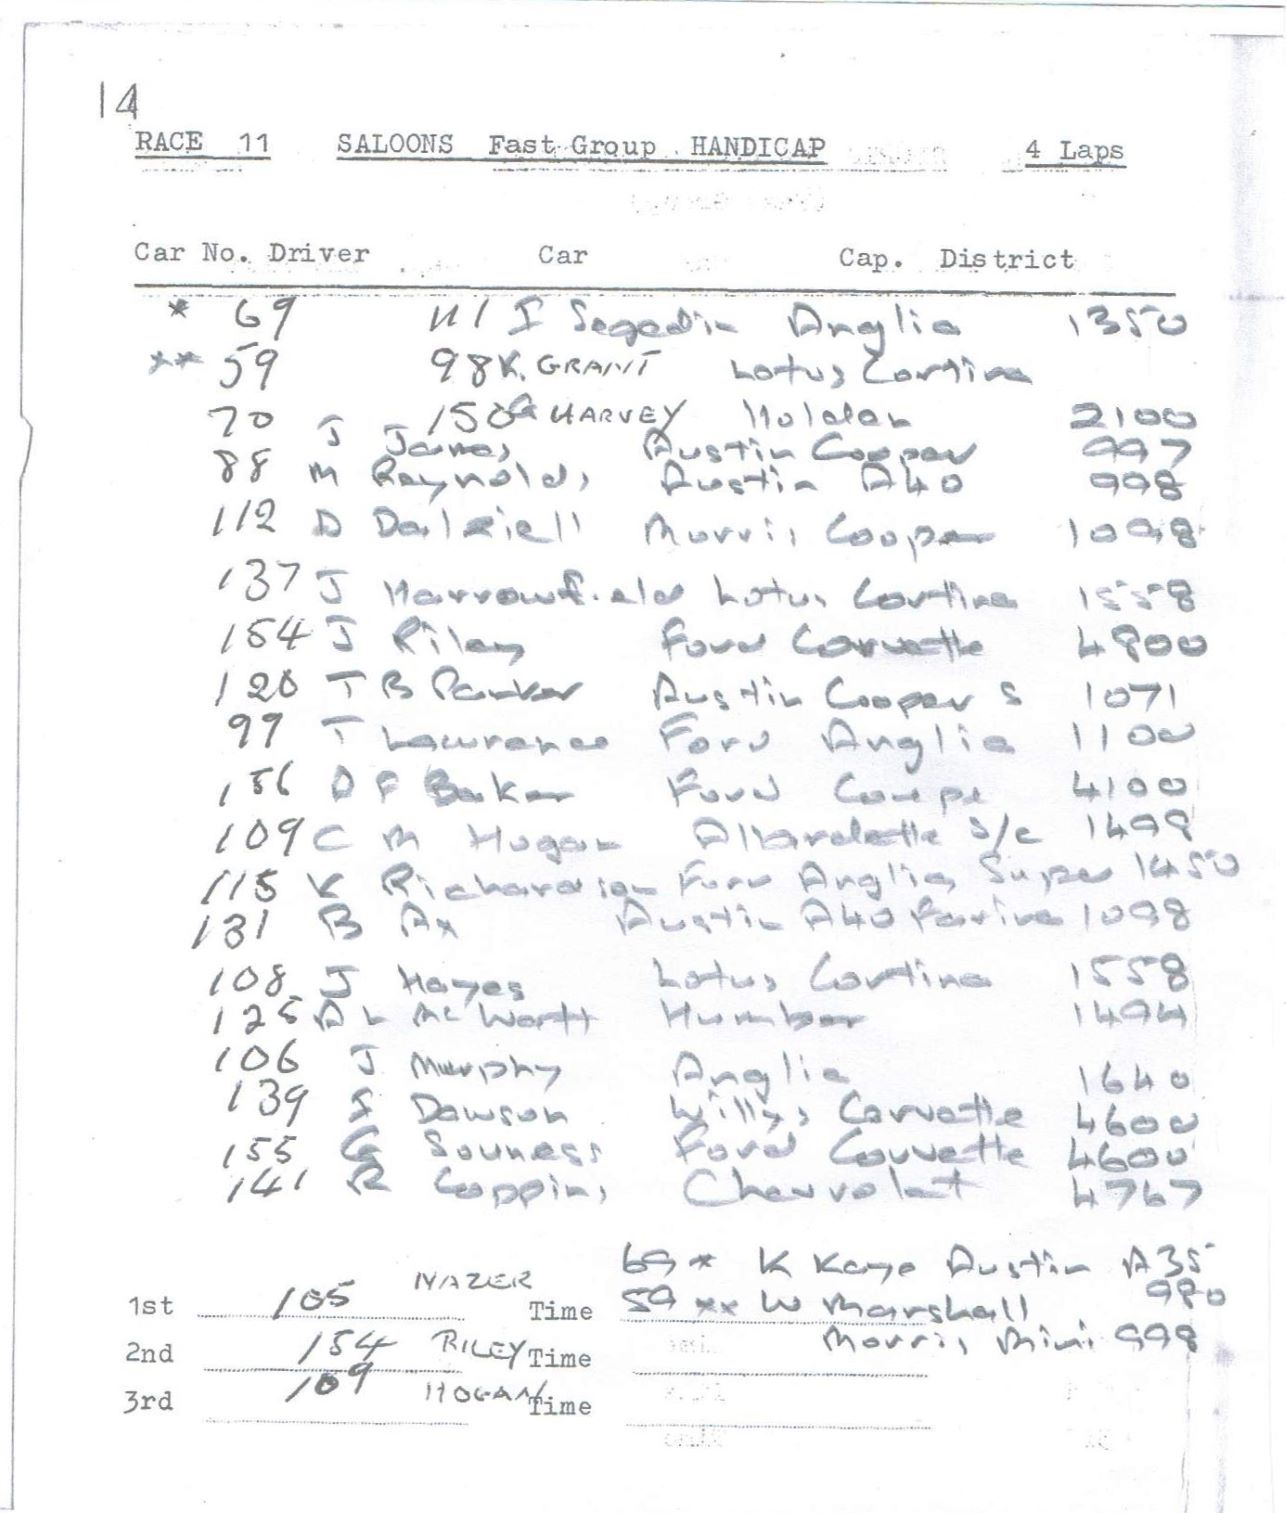 14
RACE 11 SALOONS Fast Group HANDICAP 4 Laps
Car No. Driver Car Cap. District
* 69 111 I Segedin Anglia 1350
** 59 98 K. GRANT Lotus Cortina
70 150 G HARVEY Holden 2100
J James Austin Cooper 997
88 M Reynolds Austin A40 998
112 D Dalziell Morris Cooper 1098
137 J Harrowfield Lotus Cortina 1558
154 J Riley Ford Corvette 4800
120 T B Parker Austin Cooper S 1071
99 T Lawrence Ford Anglia 1100
156 D F Baker Ford Coupe 4100
109 C M Hogan Allardette S/c 1498
115 K Richardson Ford Anglia Super 1450
131 B Ax Austin A40 Farina 1098
108 J Hayes Lotus Cortina 1558
125 A L McWartt Humber 1494
106 J Murphy Anglia 1640
139 S Dawson Willys Corvette 4600
155 G Souness Ford Corvette 4600
141 R Coppins Chevrolet 4767
69 * K Kaye Austin A35 980
1st 105 NAZER Time 59 ** W Marshall
Morris Mini 998
2nd 154 RILEY Time
3rd 109 HOGAN Time